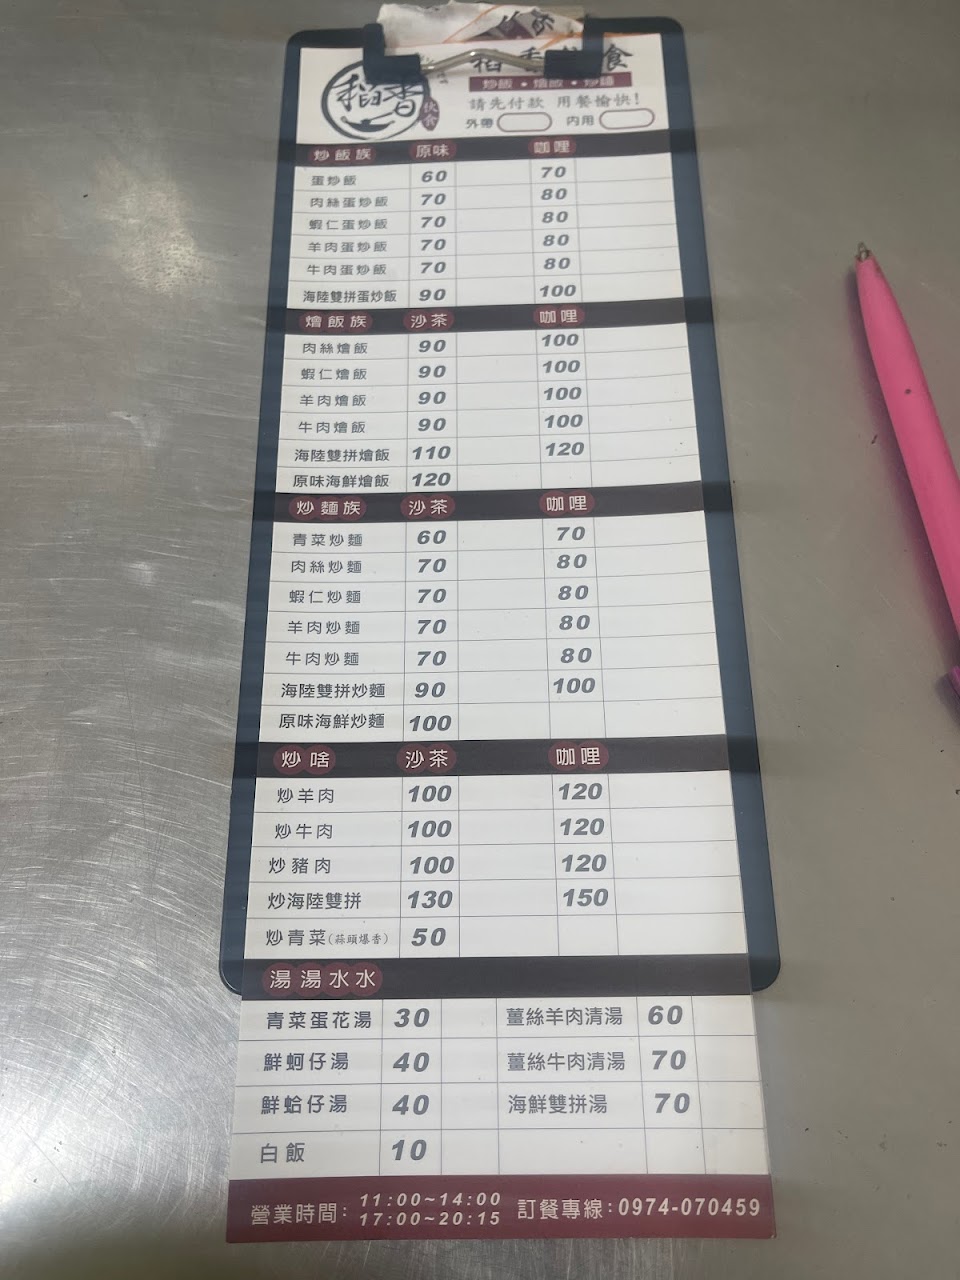 稻香 快食
稻香快食
炒飯•燴飯•炒麵
請先付款 用餐愉快!
外帶 內用
炒飯族 原味 咖哩
蛋炒飯 60 70
肉絲蛋炒飯 70 80
蝦仁蛋炒飯 70 80
羊肉蛋炒飯 70 80
牛肉蛋炒飯 70 80
海陸雙拼蛋炒飯 90 100
燴飯族 沙茶 咖哩
肉絲燴飯 90 100
蝦仁燴飯 90 100
羊肉燴飯 90 100
牛肉燴飯 90 100
海陸雙拼燴飯 110 120
原味海鮮燴飯 120
炒麵族 沙茶 咖哩
青菜炒麵 60 70
肉絲炒麵 70 80
蝦仁炒麵 70 80
羊肉炒麵 70 80
牛肉炒麵 70 80
海陸雙拼炒麵 90 100
原味海鮮炒麵 100
炒啥 沙茶 咖哩
炒羊肉 100 120
炒牛肉 100 120
炒豬肉 100 120
炒海陸雙拼 130 150
炒青菜(蒜頭爆香) 50
湯湯水水
青菜蛋花湯 30 薑絲羊肉清湯 60
鮮蚵仔湯 40 薑絲牛肉清湯 70
鮮蛤仔湯 40 海鮮雙拼湯 70
白飯 10
營業時間: 11:00~14:00
17:00~20:15 訂餐專線:0974-070459